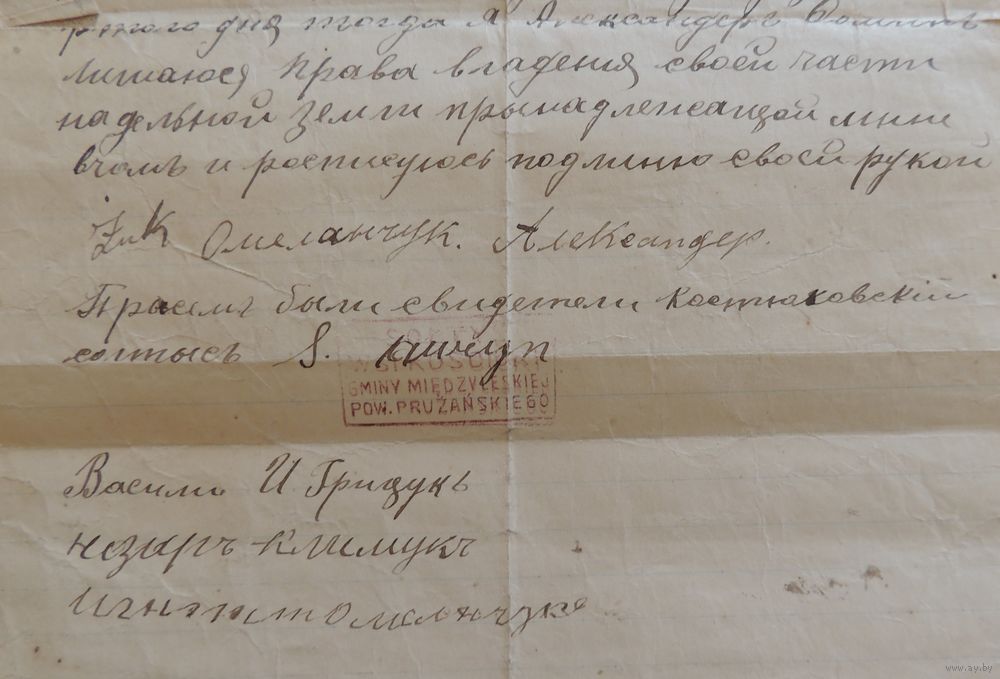 дня тогда я Александеръ
лишаюся права владения своей части
надельной земли прынадлежащой мине
вчомъ и росписуюсь подминю своей рукой
Омеланчук. Александер.
Прысемъ были свидетели Костюковскій
солтысъ S.
SOŁTYS
GMINY MIĘDZYLESKIEJ
POW. PRUŻAŃSKIEGO
Васили И Грицукъ
Назыръ Климукъ
Игнат Омеланчук
www.ay.by